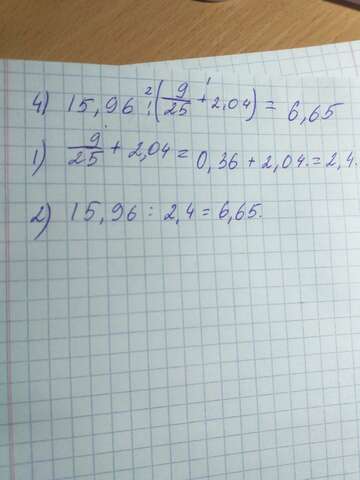 4) 15,96 : (9/25 + 2,04) = 6,65
1) 9/25 + 2,04 = 0,36 + 2,04 = 2,4.
2) 15,96 : 2,4 = 6,65.